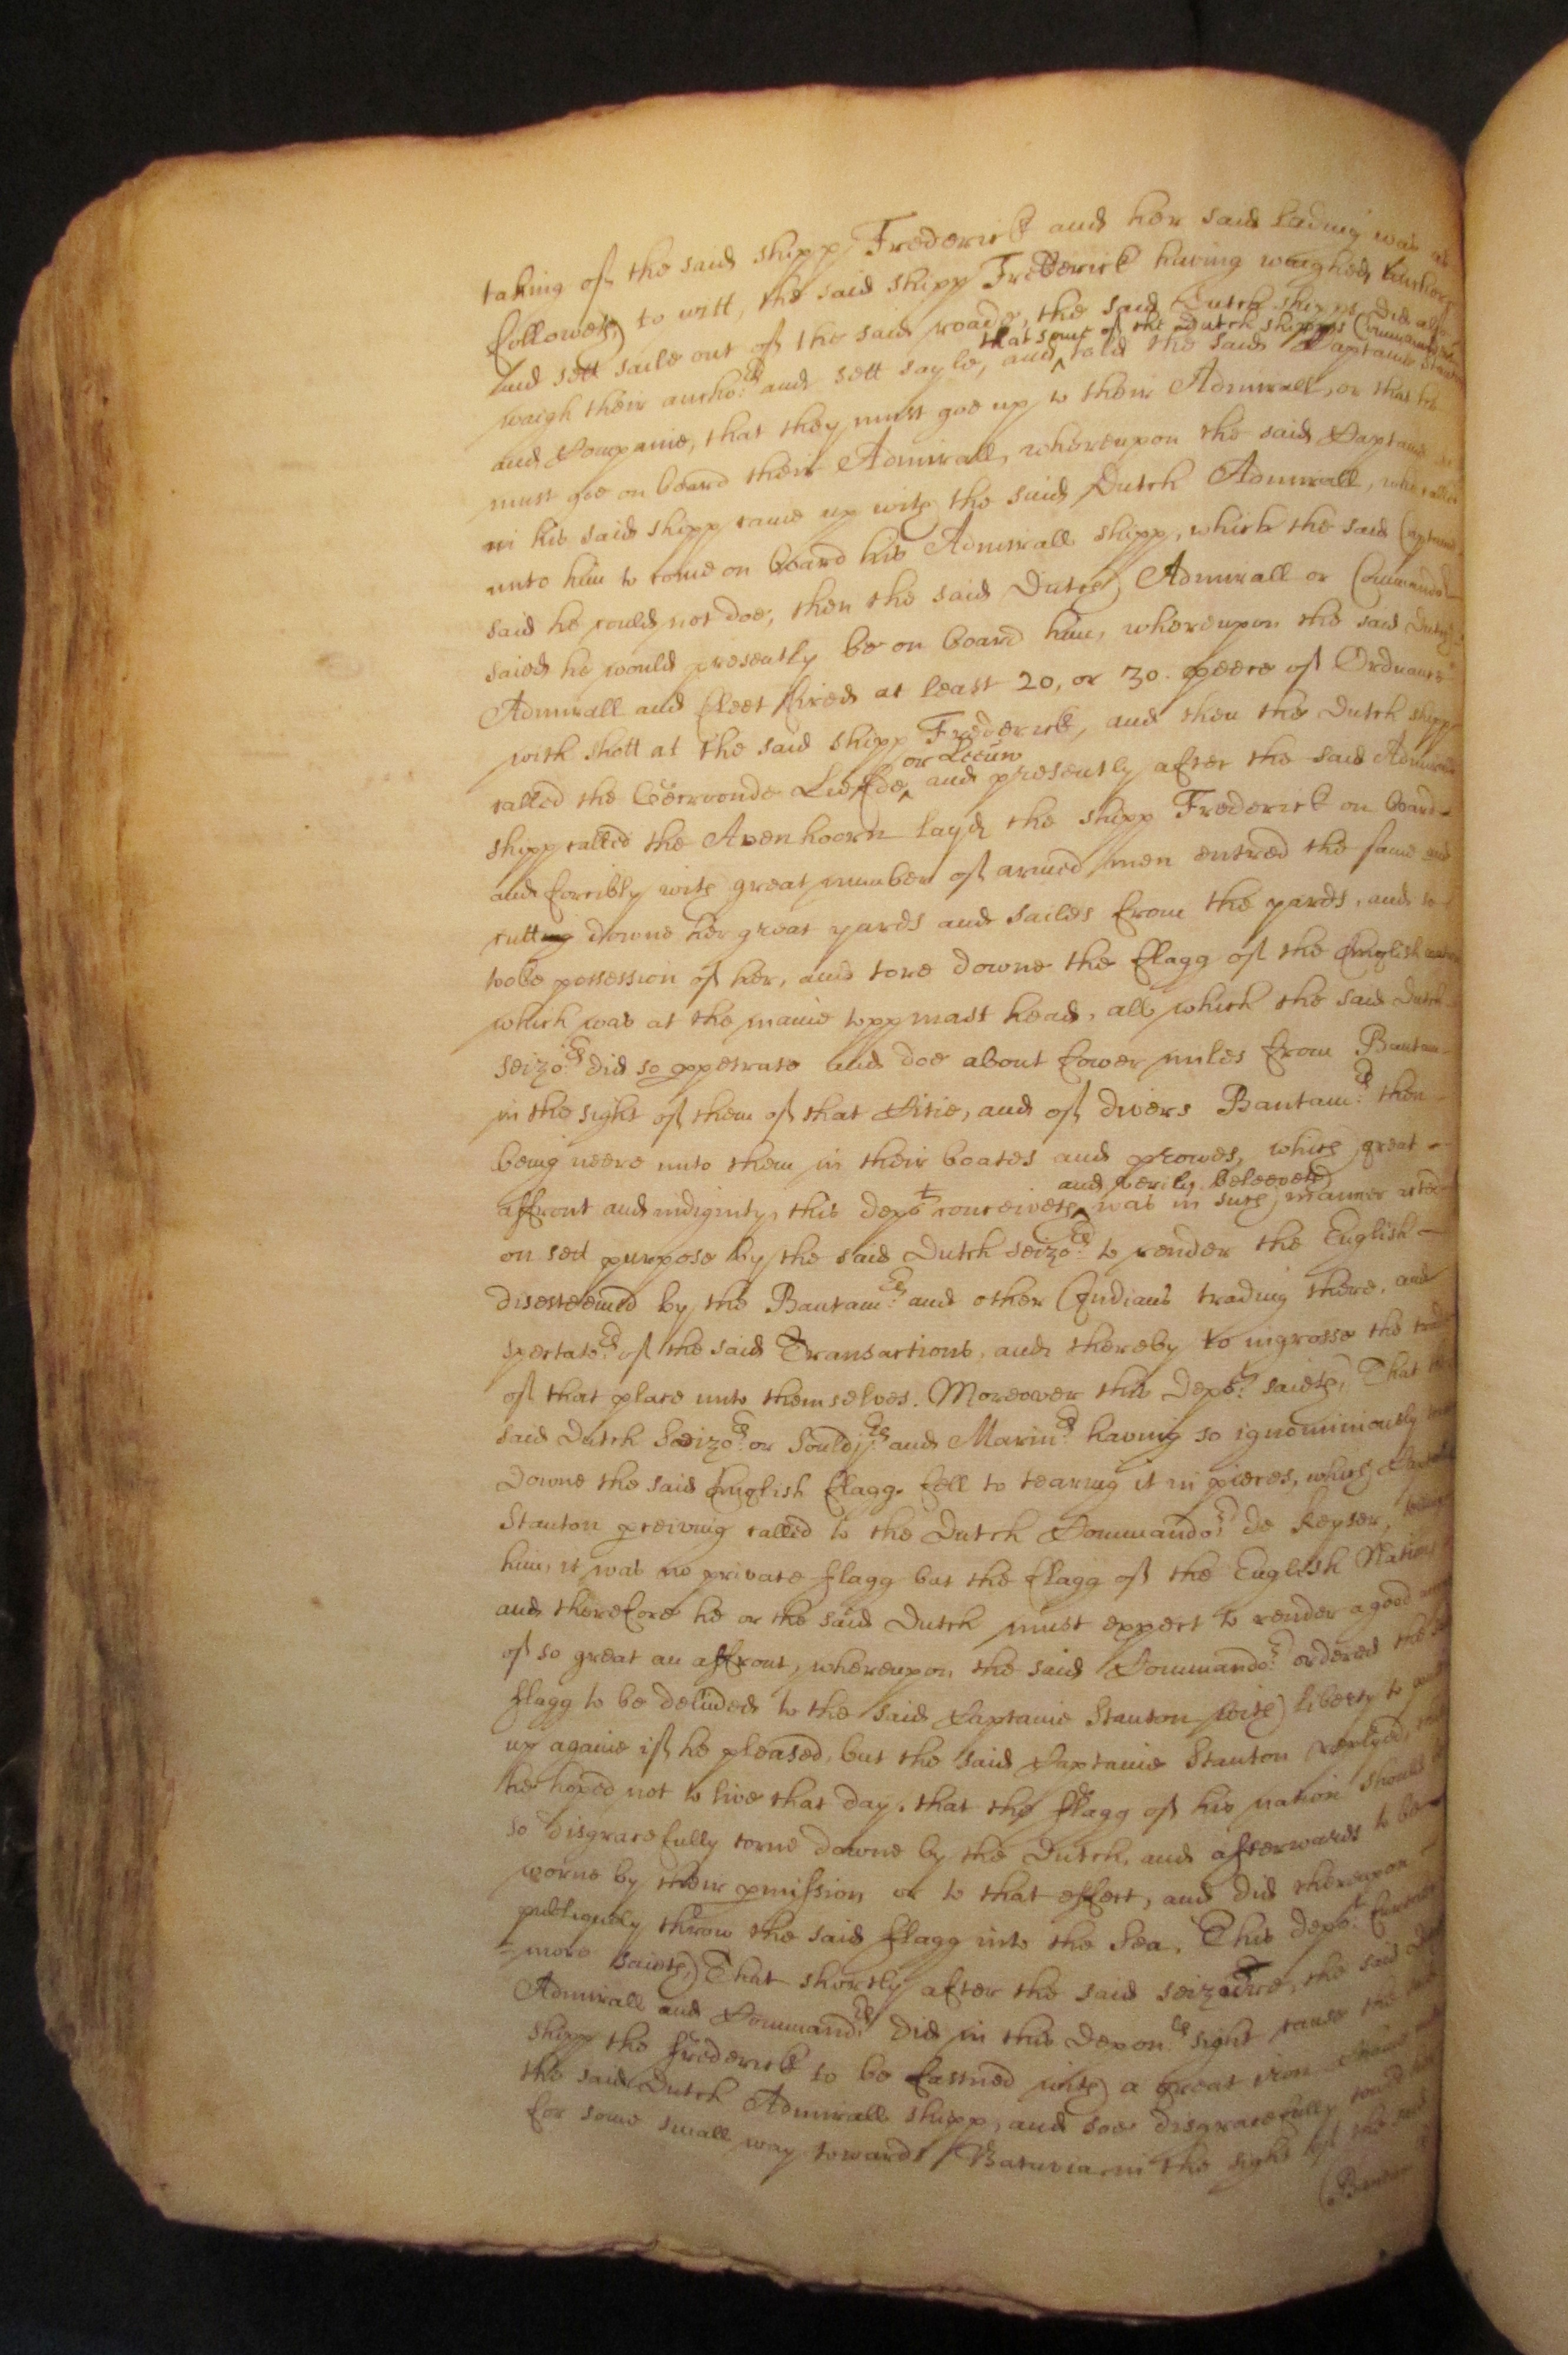 taking of the said shipp Frederick and her said lading was as
followeth, to witt, the said shipp Frederick having weighed anchor
and sett saile out of the said roade, the said Dutch shipps did also
waigh their ancho:rs and sett sayle, and told the said Captaine Stanton
that some of the Dutch shipps Commanders
and Companie, that they must goe up to their Admirall, or that he
must goe on board their Admirall, whereupon the said Captaine
in his said shipp came up with the said Dutch Admirall, who called
unto him to come on board his Admirall shipp, which the said Captaine
said he could not doe, then the said Dutch Admirall or Commando:r
saied he would presently be on board him, whereupon the said Dutch
Admirall and fleet fired at least 20, or 30. peece of Ordnance
with shott at the said shipp Frederick, and then the Dutch shipp
or Leeuw
called the Liefde, and presently after the said Admirall
shipp called the Avenhoorn layd the shipp Frederick on board
and forcibly with great number of armed men entred the same and
cutting downe her great yards and sailes from the yards, and so
tooke possession of her, and tore downe the flagg of the English nation
which was at the maine topp mast head, all which the said Dutch
seizo:rs did so ppetrate and doe about fower miles from Bantam
in the sight of them of that Citie, and of divers Bantam:rs then
being neere unto them in their boates and prowes, which great
and verily beleeveth
affront and indignity, this depo:t conceiveth was in such manner acted
on sett purpose by the said Dutch seizo:rs to render the English
disesteemed by the Bantam:rs and other Indians trading there, and
spectato:rs of the said Transactions, and thereby to ingrosse the trade
of that place unto themselves. Moreover this Depo:t saieth, That the
said Dutch Seizo:rs or Souldj:rs and Marin:rs having so ignominiously torne
downe the said English flagg, fell to tearing it in pieces, which Captaine
Stanton pceiving called to the Dutch Commando:r de Keyser, telling
him, it was no private flagg but the flagg of the English Nation
and therefore he or the said Dutch must expect to render a good
of so great an affront, whereupon the said Commando:r ordered the said
flagg to be delivded to the said Captaine Stanton with liberty to
up againe if he pleased, but the said Captaine Stanton replyed, that
he hoped not to live that day, that the flagg of his nation should be
so disgracefully torne downe by the Dutch, and afterwards to be
worne by their pmission or to that effect, and did thereupon
publiquely throw the said flagg into the Sea. This depo:t further
=more saieth, That shortly after the said seizure, the said Dutch
Admirall and Command:rs did in this depon:ts sight cause the said
shipp the Frederick to be fastned with a great iron chaine
the said Dutch Admirall shipp, and soe disgracefully towed her
for some small way towards Batavia in the sight of the said